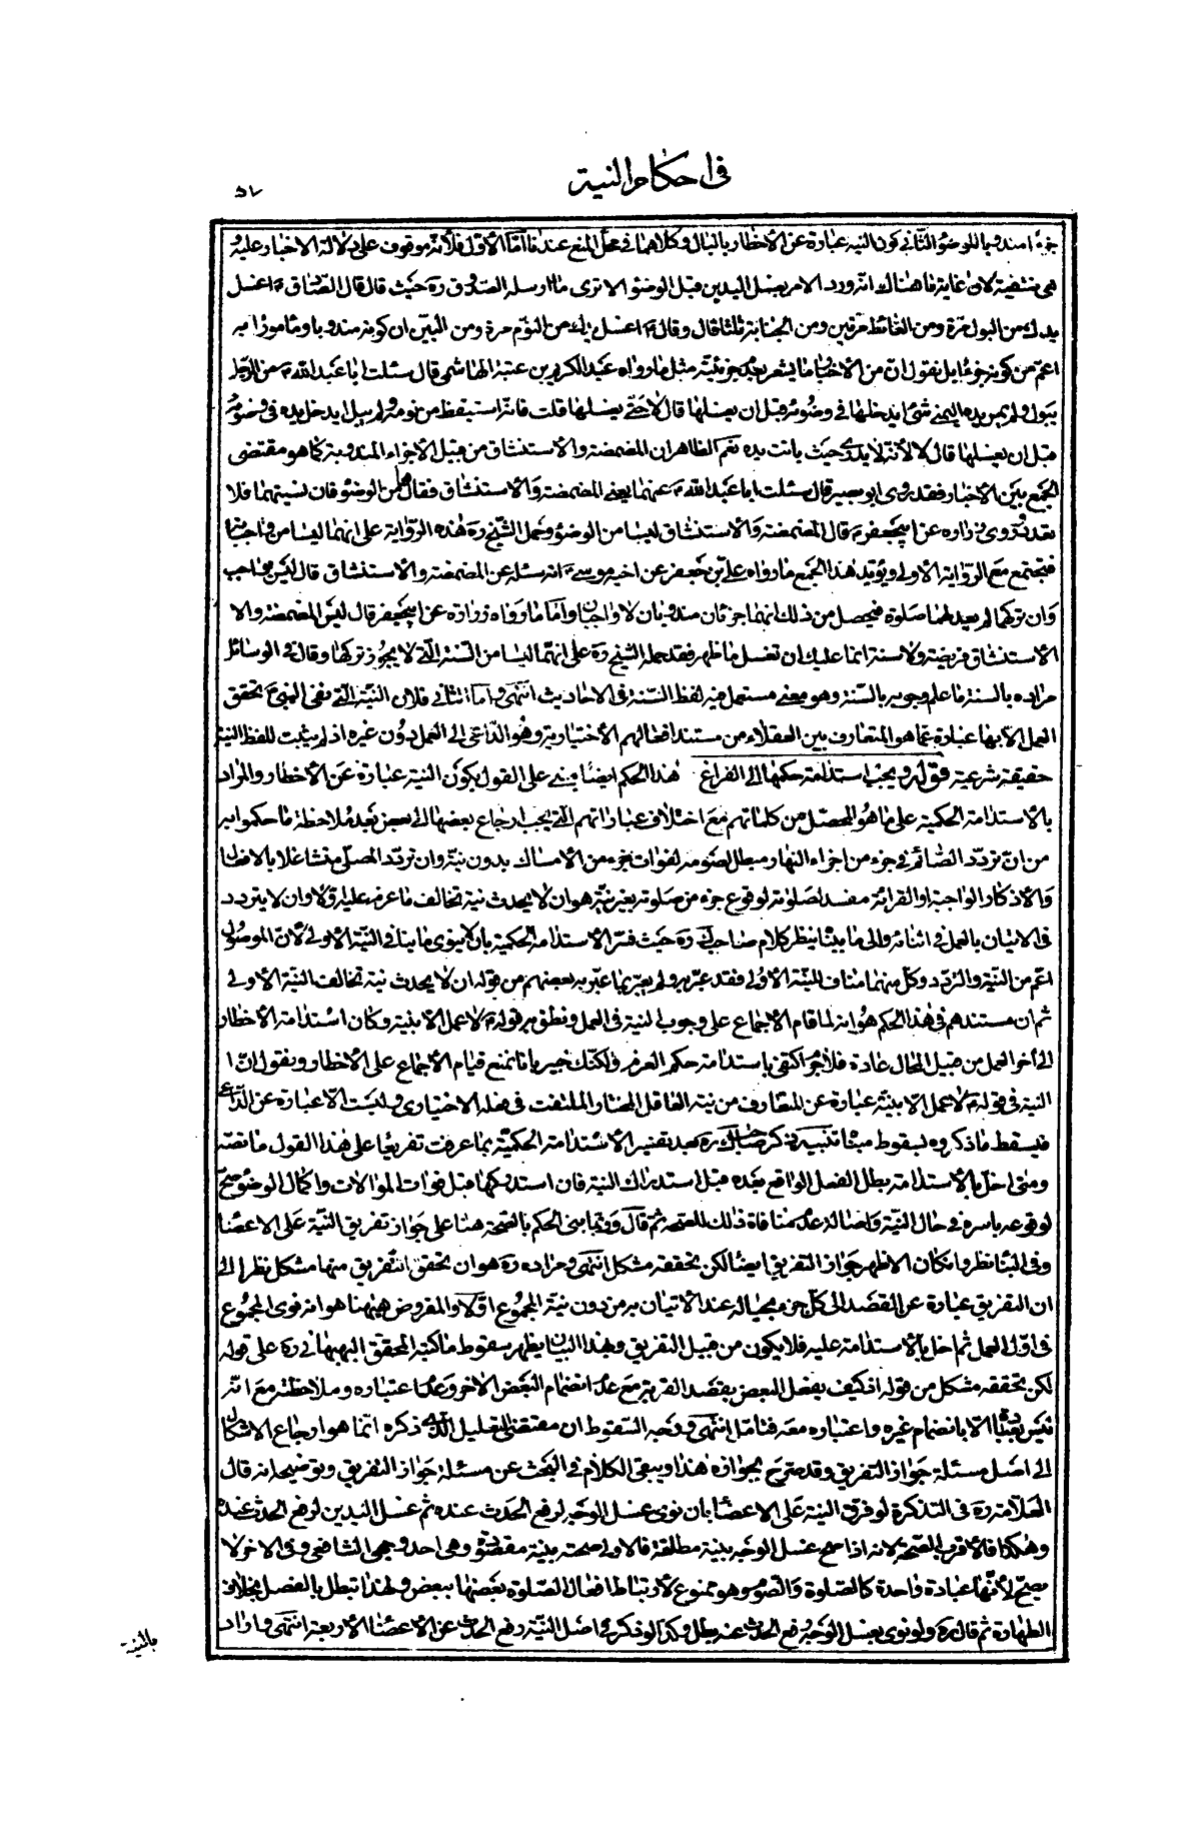 في احكام النية
٥٧
جزء امندوبا للوضوء الثاني كون النية عبارة عن الاخطار بالبال وكلاهما في محل المنع عندنا امّا الأوّل فلأنّه موقوف على دلالة الاخبار عليه و
هي منتفية لان غاية ما هناك انّه ورد الامر بغسل اليدين قبل الوضوء الا ترى ما ارسله الصّدوق ره حيث قال قال الصّادق ع اغسل
يدك من البول مرّة ومن الغائط مرّتين ومن الجنابة ثلثا قال وقال ع اغسل يدك من النّوم مرة ومن البيّن ان كونه مندوبا ومامورا به
اعمّ من كونه جزءا بل نقول انّ من الأخبار ما يشعر بعدم جزئيّته مثل ما رواه عبد الكريم بن عتبة الهاشمي قال سئلت ابا عبد الله ع عن الرّجل
يبول ولم يمس يده اليمنى شئ ايدخلها في وضوئه قبل ان يغسلها قال لا حتى يغسلها قلت فانّه استيقظ من نومه ولم يبل ايدخل يده في وضوئه
قبل ان يغسلها قال لا لأنّه لا يدري حيث باتت يده نعم الظاهر ان المضمضة والاستنشاق من قبيل الأجزاء المندوبة كما هو مقتضى
الجمع بين الأخبار فقد روى ابو بصير قال سئلت ابا عبد الله ع عنهما يعني المضمضة والاستنشاق فقال هما من الوضوء فان نسيتهما فلا
تعد وروى زرارة عن ابي جعفر ع قال المضمضة والاستنشاق ليسا من الوضوء وحمل الشّيخ ره هذه الرّواية على انهما ليسا من واجباته
فيجتمع مع الرّواية الأولى ويؤيّد هذا الجمع ما رواه علي بن جعفر عن اخيه موسى ع انه سئله عن المضمضة والاستنشاق قال ليس بواجب
وان تركهما لم يعد لهما صلوة فيحصل من ذلك انهما جزئان مندوبان لا واجبان وامّا ما رواه زرارة عن ابي جعفر قال ليس المضمضة والا
الاستنشاق فريضة ولا سنة انما عليك ان تغسل ما ظهر فقد حمله الشّيخ ره على انهما ليسا من السّنة الّتي لا يجوز تركها وقال في الوسائل
مراده بالسنة ما علم وجوبه بالسّنة وهو معنى مستعمل فيه لفظ السّنة في الاحاديث انتهى وامّا الثاني فلان النيّة الّتي نفى النبي ص تحقق
العمل الا بها عبارة عمّا هو المتعارف بين العقلاء من مستند افعالهم الأختيارية وهو الدّاعي إلى العمل دون غيره اذ لم يثبت للفظ النية
حقيقة شرعية قوله ويجب استدامة حكمها إلى الفراغ هذا الحكم ايضا مبني على القول بكون النية عبارة عن الأخطار والمراد
بالأستدامة الحكمية على ما هو المحصّل من كلماتهم مع اختلاف عباراتهم الّتي يجب ارجاع بعضها إلى بعض بعد ملاحظة ما حكموا به
من انّ تردّد الصّائم في جزء من اجزاء النهار مبطل لصومه لفوات جزء من الأمساك بدون نيّة وان تردّد المصلّي متشاغلا بالافعال
والأذكار الواجبة او القرائة مفسد لصلوته لوقوع جزء من صلوته بغير نيّة هو ان لا يحدث نية تخالف ما عزم عليه اوّلا وان لا يتردد
في الاتيان بالعمل في اثنائه والى ما بيّنا ينظر كلام صاحب ك ره حيث فسّر الأستدامة الحكمية بان لا ينوي ما ينافي النيّة الأولى لأنّ الموصول
اعمّ من النيّة والتّردّد وكل منهما مناف للنيّة الأولى فقد عبّر به ولم يعبّر بما عبّر به بعضهم من قوله ان لا يحدث نية تخالف النيّة الأولى
ثم ان مستندهم في هذا الحكم هو انه لما قام الأجماع على وجوب النية في العمل ونطق به قوله ع لا عمل الا بنية وكان استدامة الأخطار
إلى آخر العمل من قبيل المحال عادة فلا جرم اكتفى باستدامة حكم العزم ولكنّك خبير بانا نمنع قيام الأجماع على الأخطار ونقول انّ ا
النية في قوله ع لا عمل الا بنيّة عبارة عن المتعارف من نية الغافل المختار الملتفت في فعله الاختياري وليست الا عبارة عن الدّاعي
فيسقط ما ذكروه لسقوط مبناه تنبيه ذكر صاحب ك ره بعد تفسير الأستدامة الحكميّة بما عرفت تفريعا على هذا القول ما نصّه
ومتى اخلّ بالأستدامة بطل الفعل الواقع بعده قبل استدراك النية فان استدركها قبل فوات الموالات واكمال الوضوء صحّ
لوقوعه باسره في حال النيّة واصالة عدم منافاة ذلك للصّحة ثمّ قال وربّما بنى الحكم بالصّحة هنا على جواز تفريق النيّة على الاعضاء
وفي البناء نظر وان كان الاظهر جواز التفريق ايضا لكن تحققه مشكل انتهى ومراده ره هو ان تحقق التّفريق منها مشكل نظرا إلى
ان التفريق عبارة عن القصد إلى كلّ جزء بحياله عند الاتيان به من دون نية المجموع اوّلا والمفروض هيهنا هو انه نوى المجموع
في اوّل العمل ثم اخلّ بالأستدامة عليه فلا يكون من قبيل التفريق وبهذا البيان يظهر سقوط ما كتبه المحقق البهبهاني ره على قوله
لكن تحققه مشكل من قوله اذ كيف يفعل البعض بقصد القربة مع عدم انضمام البعض الآخر وعدم اعتباره وملاحظته مع انّه
ليس بعبادة الّا بانضمام غيره واعتباره معه فتامّل انتهى ووجه السّقوط ان مقتضى التعليل الّذي ذكره انّما هو ارجاع الاشكال
إلى اصل مسئلة جواز التفريق وقد صرّح بجوازه هذا ويبقى الكلام في البحث عن مسئلة جواز التفريق وتوضيحه انه قال
العلّامة ره في التذكرة لو فرّق النية على الاعضاء بان نوى غسل الوجه لرفع الحدث عنده ثم غسل اليدين لرفع الحدث عنده
وهكذا فالأقرب الصّحة لانه اذا صح غسل الوجه بنيّة مطلقة فالاولى صحته بنية مقصودة وهي احد وجهي الشافعي وفي الاخر لا
يصحّ لأنّها عبادة واحدة كالصّلوة والصّوم وهو ممنوع لأرتباط افعال الصّلوة بعضها ببعض ولهذا تبطل بالفصل بخلاف
الطّهارة ثم قال ره ولو نوى بغسل الوجه رفع الحدث عنه بطل وكذا لو ذكر في اصل النيّة رفع الحدث عن الأعضاء الأربعة انتهى واراد
بالنية